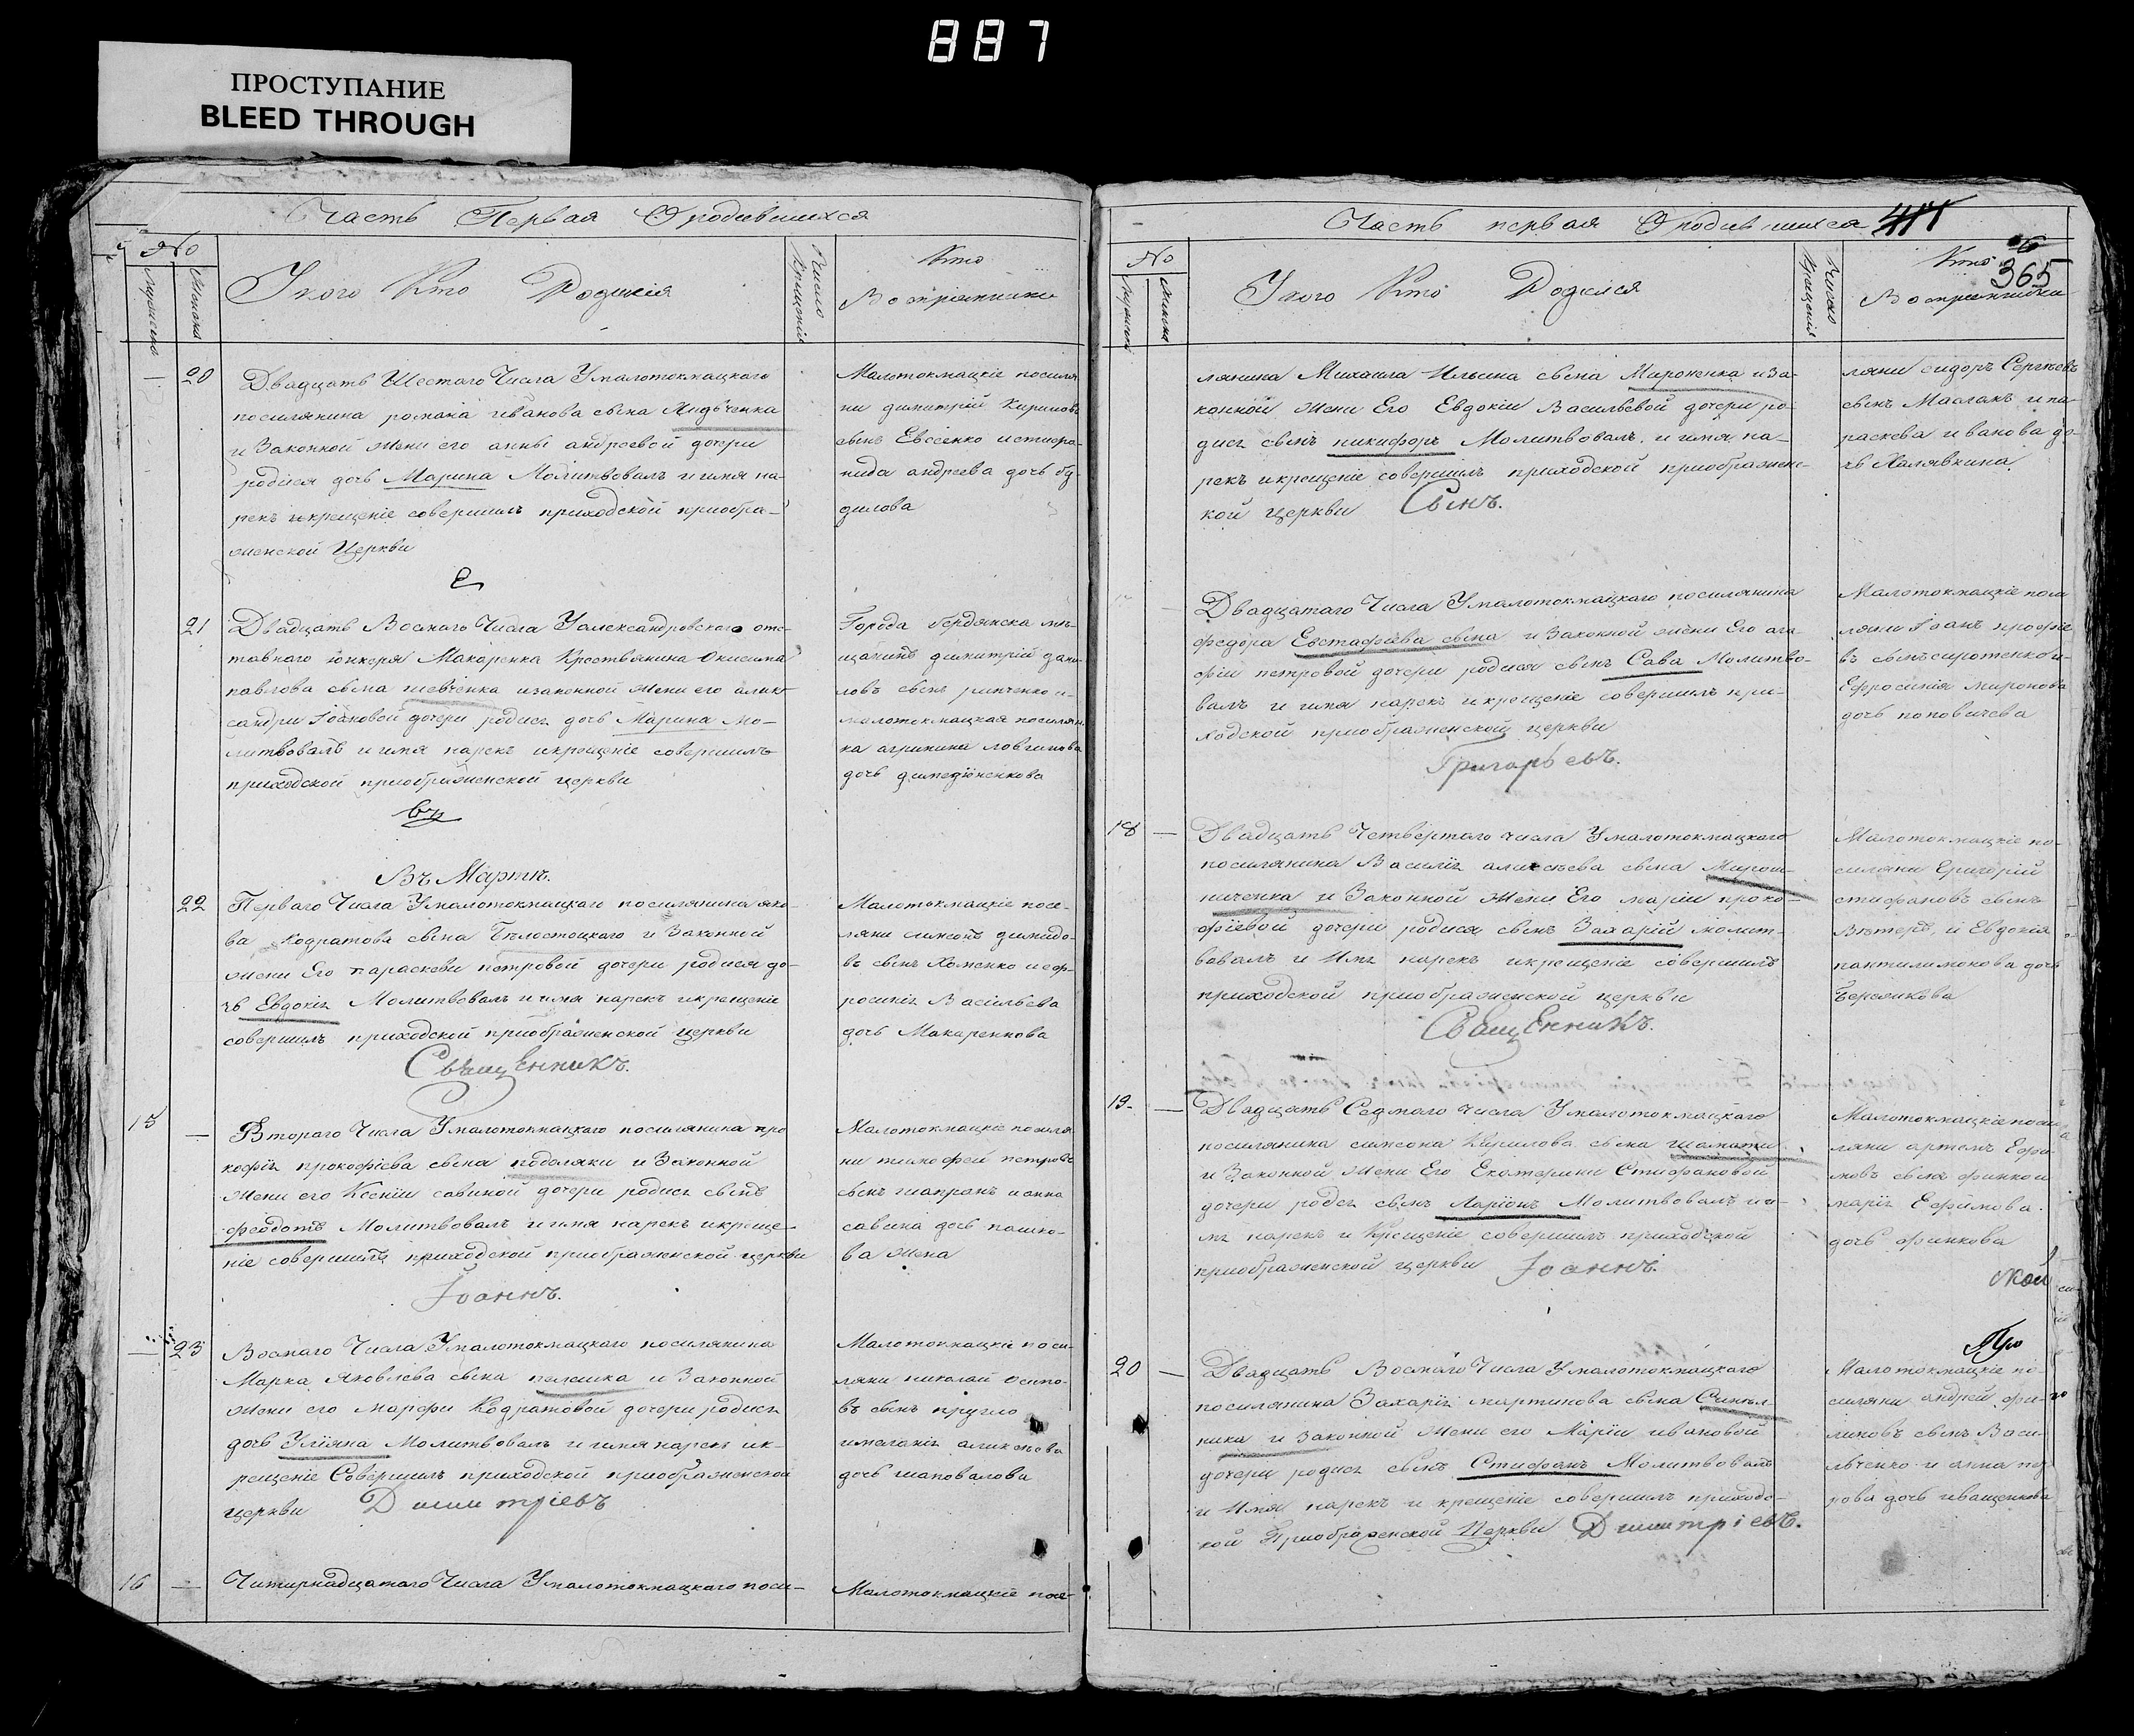 887
ПРОСТУПАНИЕ
BLEED THROUGH
Часть Первая О родившихся
No
Мужеска
Женска
У кого Кто Родился
Число Крещенія
Кто
Воспріемники
— 20
Двадцать Шестаго Числа Умалотокмацкаго
поселянина романа иванова сына
и Законной жены его анны андреевой дочери
родися дочь Марина Молитвовалъ и имя на-
рекъ икрещеніе совершилъ приходской приобра-
женской Церкви
Малотокмацкіе поселя
ни димитрій Кирилов
сынъ Евсеенко истефа-
нида андреева дочь бу-
дилова
21
Двадцать Восмаго Числа Уалександровскаго отс-
тавнаго юнкера Макаренка Крествянина Онисима
павлова сына шевченка изаконной жени его алик-
сандри Іоановой дочери родись дочь Марина мо-
литвовалъ и имя нарекъ икрещеніе совершилъ
приходской приображенской церкви
Города бердянска мѣ-
щанинъ димитрій дани
ловъ сынъ и-
малотокмацкая поселян
ка агрипина логвинова
дочь
Въ Мартѣ.
22
Перваго Числа Умалотокмацкаго поселянина яко
ва Кодратова сына Бѣлостоцкаго и Законной
жени Его параскеви петровой дочери родися до-
чь Евдокія Молитвовалъ и имя нарекъ икрещеніе
совершилъ приходской приображенской церкви
Священникъ.
Малотокмацкіе посе-
ляни симеонъ димидо-
въ сынъ Хоменко иеф-
росинія Васильева
дочь Макаренкова
15 —
Втораго Числа Умалотокмацкаго поселянина про
кофія прокофіева сына подоляки и Законной
жени его Ксеніи савиной дочери родись сынъ
феодотъ Молитвовалъ и имя нарекъ икреще-
ніе совершилъ приходской приображенской церкви
Іоаннъ.
Малотокмацкіе поселя
ни тимофей петровъ
сынъ шапранъ и анна
савина дочь пашко-
ва жена
— 23
Восмаго Числа Умалотокмацкаго поселянина
Марка Яковлева сына и Законной
жени его Марфи Кодратовой дочери родись
дочь Уліяна Молитвовалъ и имя нарекъ ик-
рещеніе Совершилъ приходской приображенской
церкви Димитріевъ
Малотокмацкіе посе-
ляни николай осипо-
въ сынъ кругло
имеланія аликсѣева
дочь шаповалова
16 —
Читирнадцатаго Числа Умалотокмацкаго посе-
Малотокмацкіе посе-
Часть первая О родившихся
365
No
Мужеска
Женска
У кого Кто Родился
Число Крещенія
Кто
Воспріемники
лянина Михаила Ильина сына Мироненка иЗа-
конной жени Его Евдокіи Васильевой дочери ро-
дись сынъ никифоръ Молитвовалъ и имя на-
рекъ икрещеніе совершилъ приходской приображенс-
кой церкви Сынъ.
ляни сидоръ Сергѣевъ
сынъ Масланъ и па-
раскева иванова до-
чь Халявкина
Двадцатаго Числа Умалотокмацкаго поселянина
федора Евстафіева сына и Законной жени Его ага-
фіи петровой дочери родися сынъ Сава Молитво-
валъ и имя нарекъ икрещеніе совершилъ при-
ходской приображенской церкви
Григорьевъ.
Малотокмацкіе посе
ляни Іоанъ профіе
въ сынъ сиротенко и
Ефросинія миронова
дочь поповичева
18 —
Двадцать Четвертаго числа Умалотокмацкаго
поселянина Василія аликсѣева сына Мирош-
ниченка и Законной жени Его маріи проко-
фіевой дочери родися сынъ Захарій молит-
вовалъ и Имя нарекъ икрещеніе совершилъ
приходской приображенской церкви
Священникъ.
Малотокмацкіе по-
селяни Григорій
стифановъ сынъ
Вѣтеръ, и Евдокія
пантилимонова дочь
19. —
Двадцать Седмаго числа Умалотокмацкаго
поселянина симеона Кирилова сына
и Законной жени Его Екатерини Стифановой
дочери родись сынъ Ларіонъ Молитвовалъ и и-
мя нарекъ и Крещеніе совершилъ приходской
приображенской церкви Іоаннъ.
Малотокмацкіе посе
ляни артемъ Ефи-
мовъ сынъ финко и
марія Ефимова
дочь финкова
20 —
Двадцать Восмаго Числа Умалотокмацкаго
поселянина Захарія мартинова сына Синѣл-
ника и Законной жени его Маріи ивановой
дочери родись сынъ Стифанъ Молитвовалъ
и Имя нарекъ и крещеніе совершилъ приходс-
кой Приображенской Церкви Димитріевъ.
Малотокмацкіе по-
селяни андрей фи-
липовъ сынъ Васи-
льченко и анна
рова дочь иващенкова